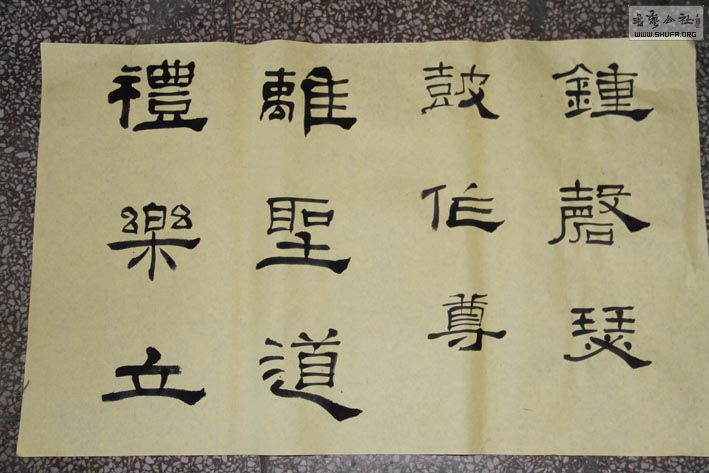 鍾磬瑟
鼓作尊
離聖道
禮樂立
書藝公社
WWW.SHUFA.ORG